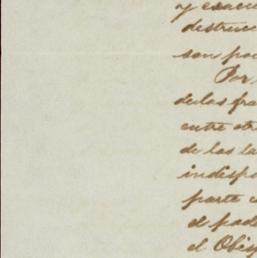 y
destruc
son po
Por
de las fra
entre otr
de las la
indispe
parte
el pad
el Obis